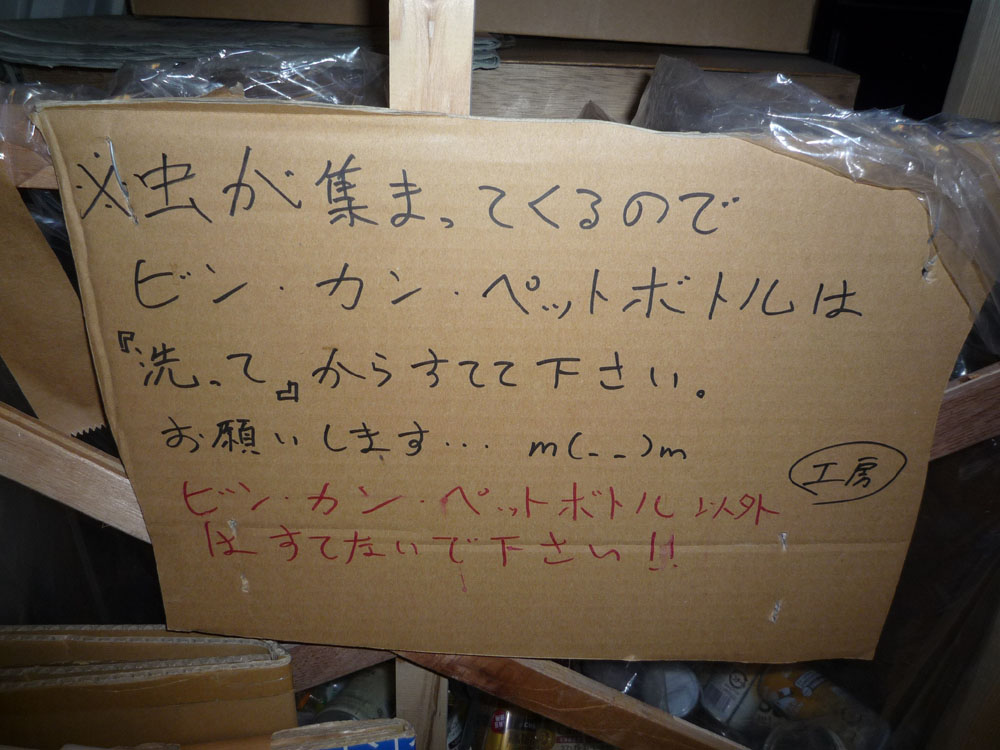 ※虫が集まってくるので
ビン・カン・ペットボトルは
『洗って』からすてて下さい。
お願いします… m(_ _)m
工房
ビン・カン・ペットボトル以外
はすてないで下さい!!